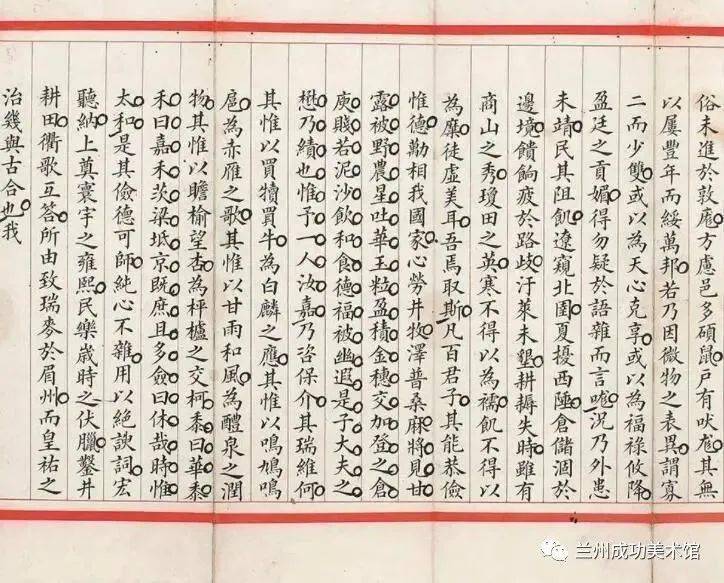 俗未進於敦龐方慮邑多碩鼠戶有吠尨其無
以屢豐年而綏萬邦若乃因微物之表異謂寡
二而少雙或以為天心克享或以為福祿攸降
盈廷之貢媚得勿疑於語雜而言嘵況乃外患
未靖民其阻飢遼窺北圉夏擾西陲倉儲涸於
邊境饋餉疲於路歧汙萊未墾耕耨失時雖有
商山之秀瓊田之英寒不得以為襦飢不得以
為糜徒虛美耳吾焉取斯凡百君子其能恭儉
惟德勤相我國家心勞井牧澤普桑麻將見甘
露被野農星吐華玉粒盈積金穗交加登之倉
庾賤若泥沙飲和食德福被幽遐是子大夫之
懋乃績也惟予一人汝嘉乃咨保介其瑞維何
其惟以買犢買牛為白麟之應其惟以鳴鳩鳴
扈為赤雁之歌其惟以甘雨和風為醴泉之潤
物其惟以瞻榆望杏為枰櫨之交柯黍曰華黍
禾曰嘉禾茨梁坻京既庶且多僉曰休哉時惟
太和是其儉德可師純心不雜用以絕諛詞宏
聽納上奠寰宇之雍熙民樂歲時之伏臘鑿井
耕田衢歌互答所由致瑞麥於眉州而皇祐之
治幾與古合也我
兰州成功美术馆